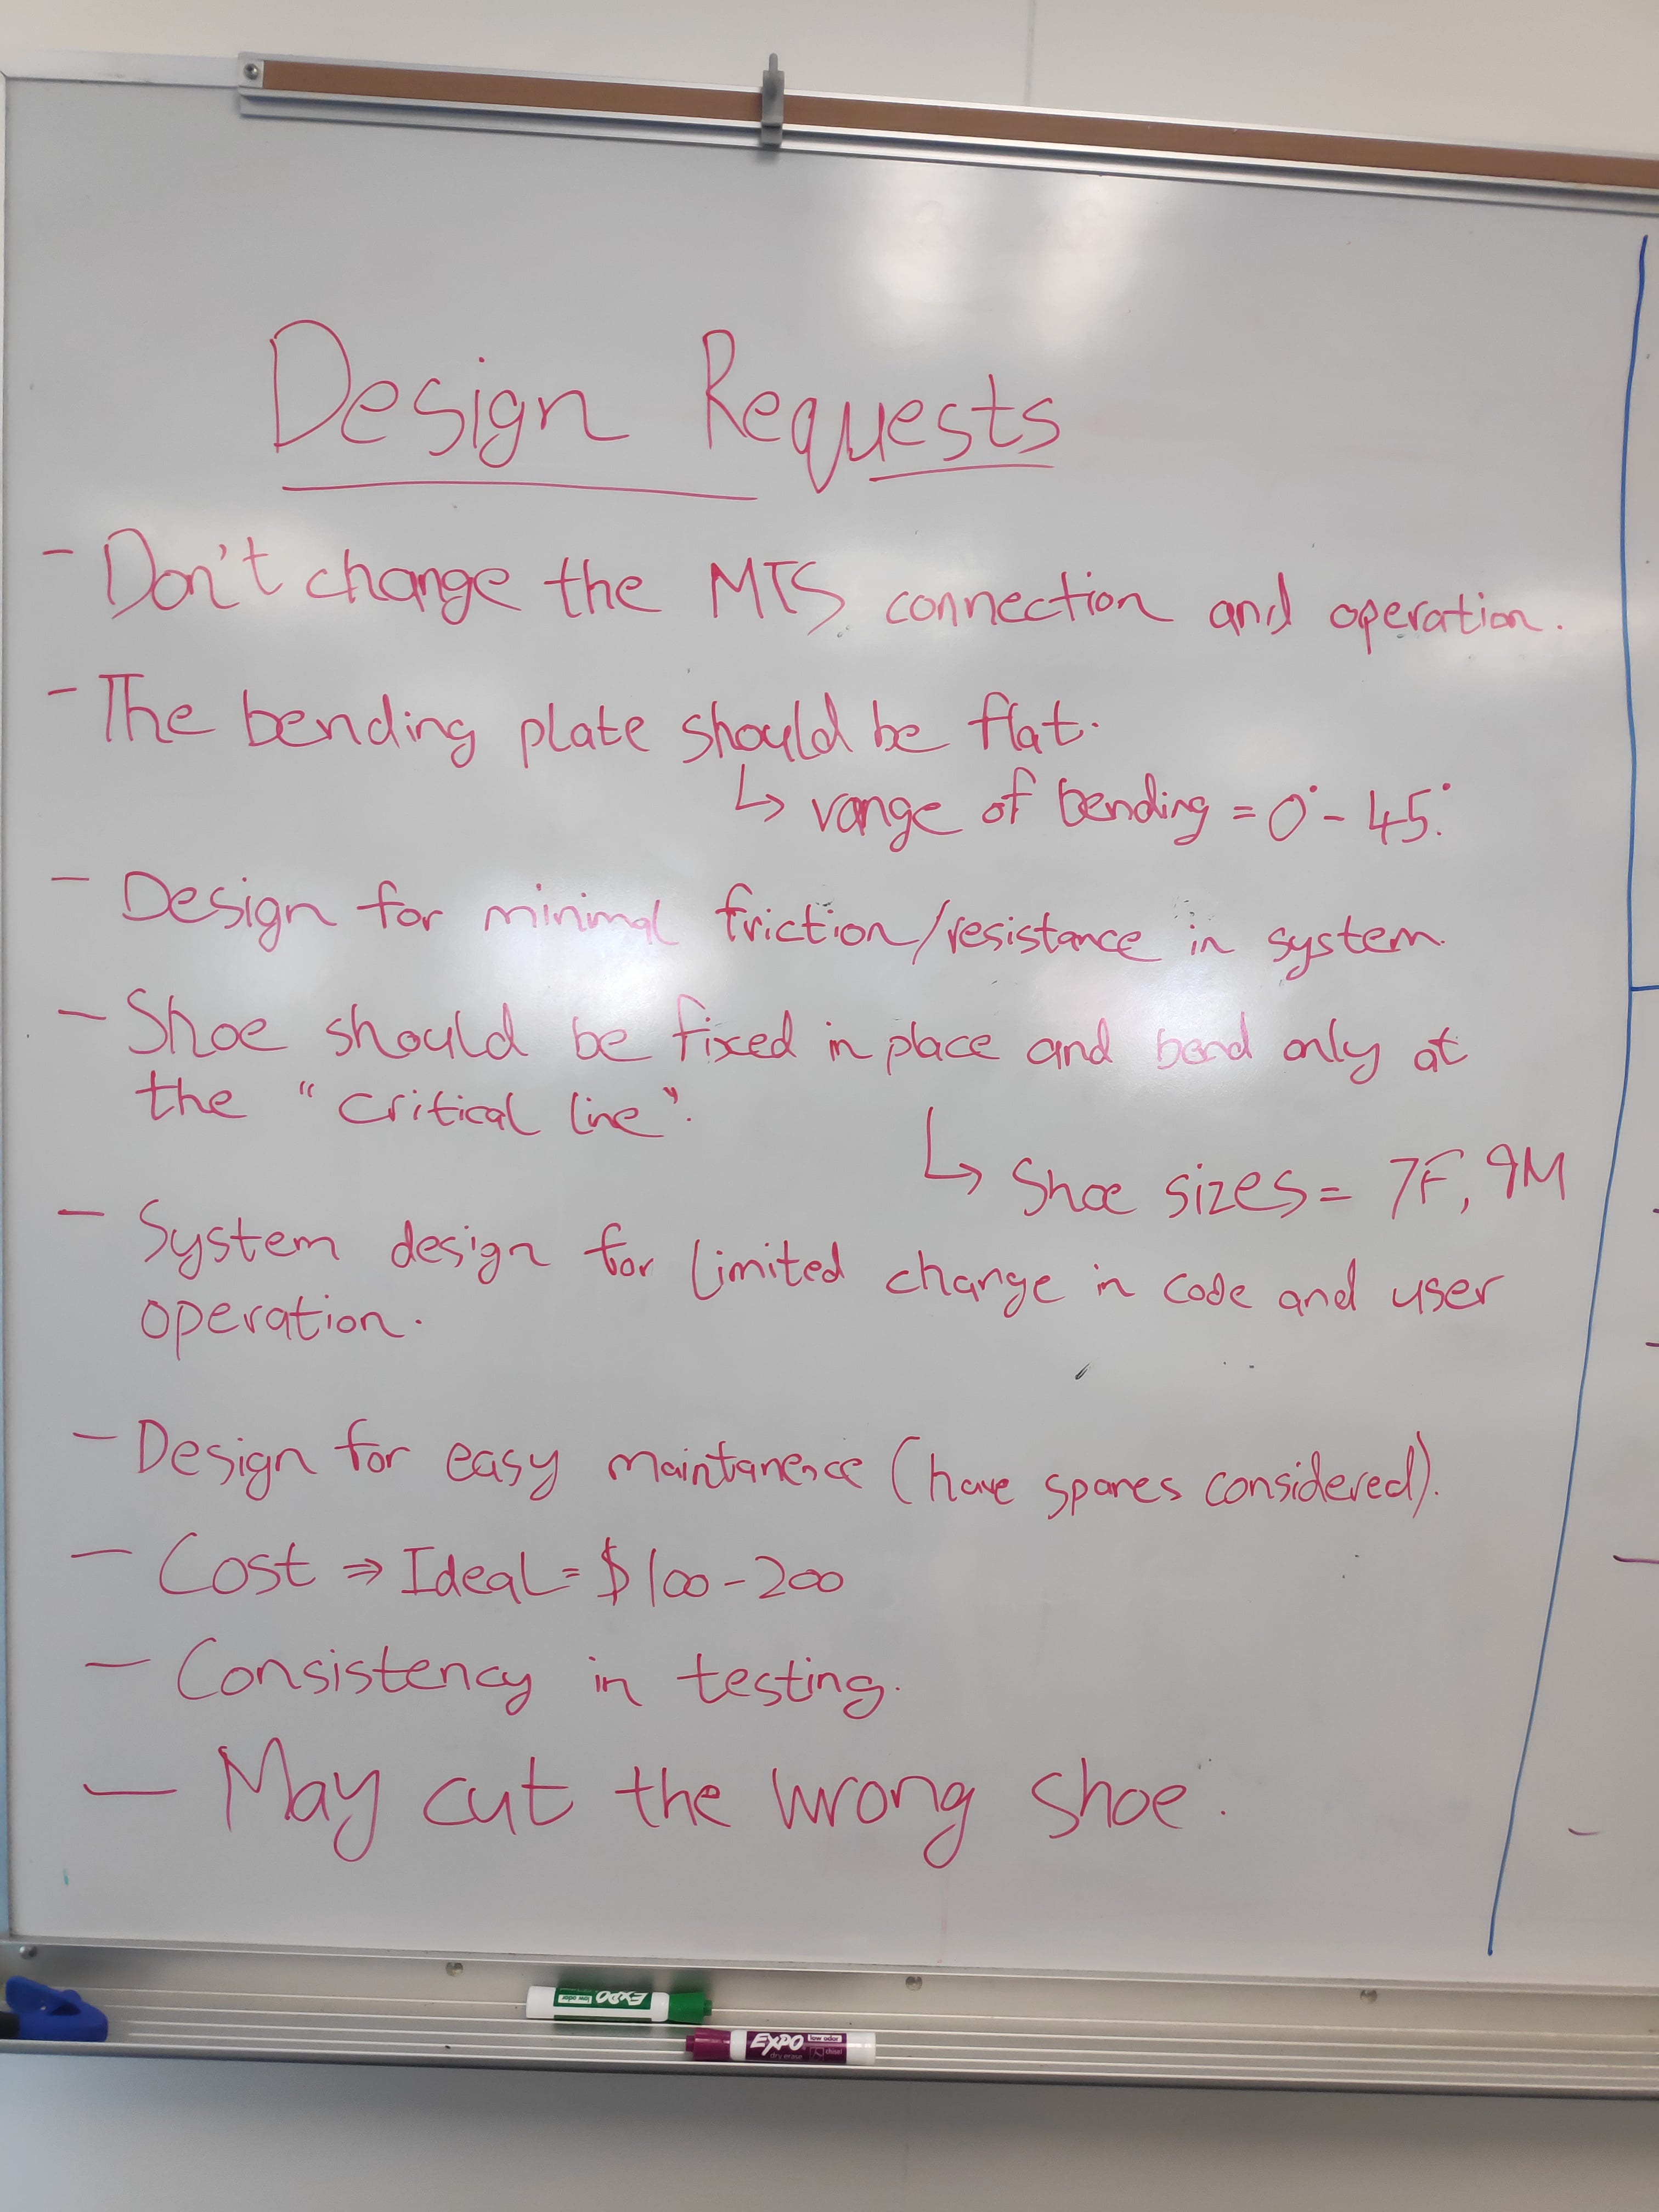 Design Requests
- Don't change the MTS connection and operation.
- The bending plate should be flat.
↳ range of bending = 0° - 45°.
- Design for minimal friction/resistance in system.
- Shoe should be fixed in place and bend only at
the "critical line".
↳ Shoe sizes = 7F, 9M
- System design for limited change in code and user
operation.
- Design for easy maintanence (have spares considered).
- Cost ⇒ Ideal = $100-200
- Consistency in testing.
- May cut the wrong shoe.
EXPO
low odor
EXPO low odor
dry erase chisel